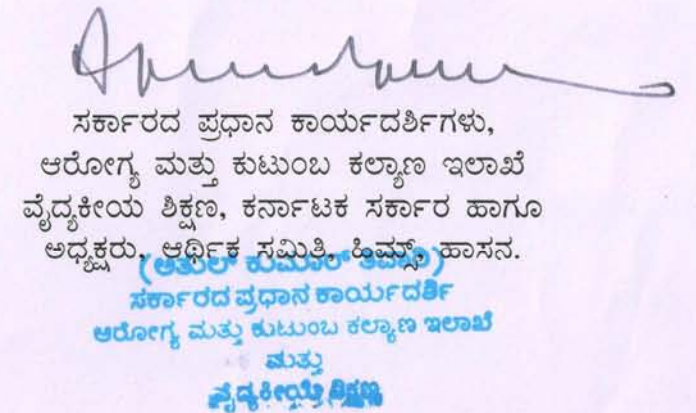 ಸರ್ಕಾರದ ಪ್ರಧಾನ ಕಾರ್ಯದರ್ಶಿಗಳು,
ಆರೋಗ್ಯ ಮತ್ತು ಕುಟುಂಬ ಕಲ್ಯಾಣ ಇಲಾಖೆ
ವೈದ್ಯಕೀಯ ಶಿಕ್ಷಣ, ಕರ್ನಾಟಕ ಸರ್ಕಾರ ಹಾಗೂ
ಅಧ್ಯಕ್ಷರು, ಆರ್ಥಿಕ ಸಮಿತಿ, ಹಿಮ್ಸ್, ಹಾಸನ.
(ಅತುಲ್ ಕುಮಾರ್ ತಿವಾರಿ)
ಸರ್ಕಾರದ ಪ್ರಧಾನ ಕಾರ್ಯದರ್ಶಿ
ಆರೋಗ್ಯ ಮತ್ತು ಕುಟುಂಬ ಕಲ್ಯಾಣ ಇಲಾಖೆ
ಮತ್ತು
ವೈದ್ಯಕೀಯ ಶಿಕ್ಷಣ